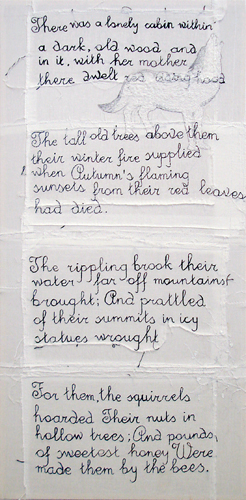 There was a lonely cabin within
a dark, old wood and
in it, with her mother
there dwelt red riding hood
The tall old trees above them
their winter fire supplied
when Autumn's flaming
sunsets from their red leaves
had died.
The rippling brook their
water far off mountains
brought; And prattled
of their summits in icy
statues wrought
For them, the squirrels
hoarded Their nuts in
hollow trees; And pounds,
of sweetest honey Were
made them by the bees.